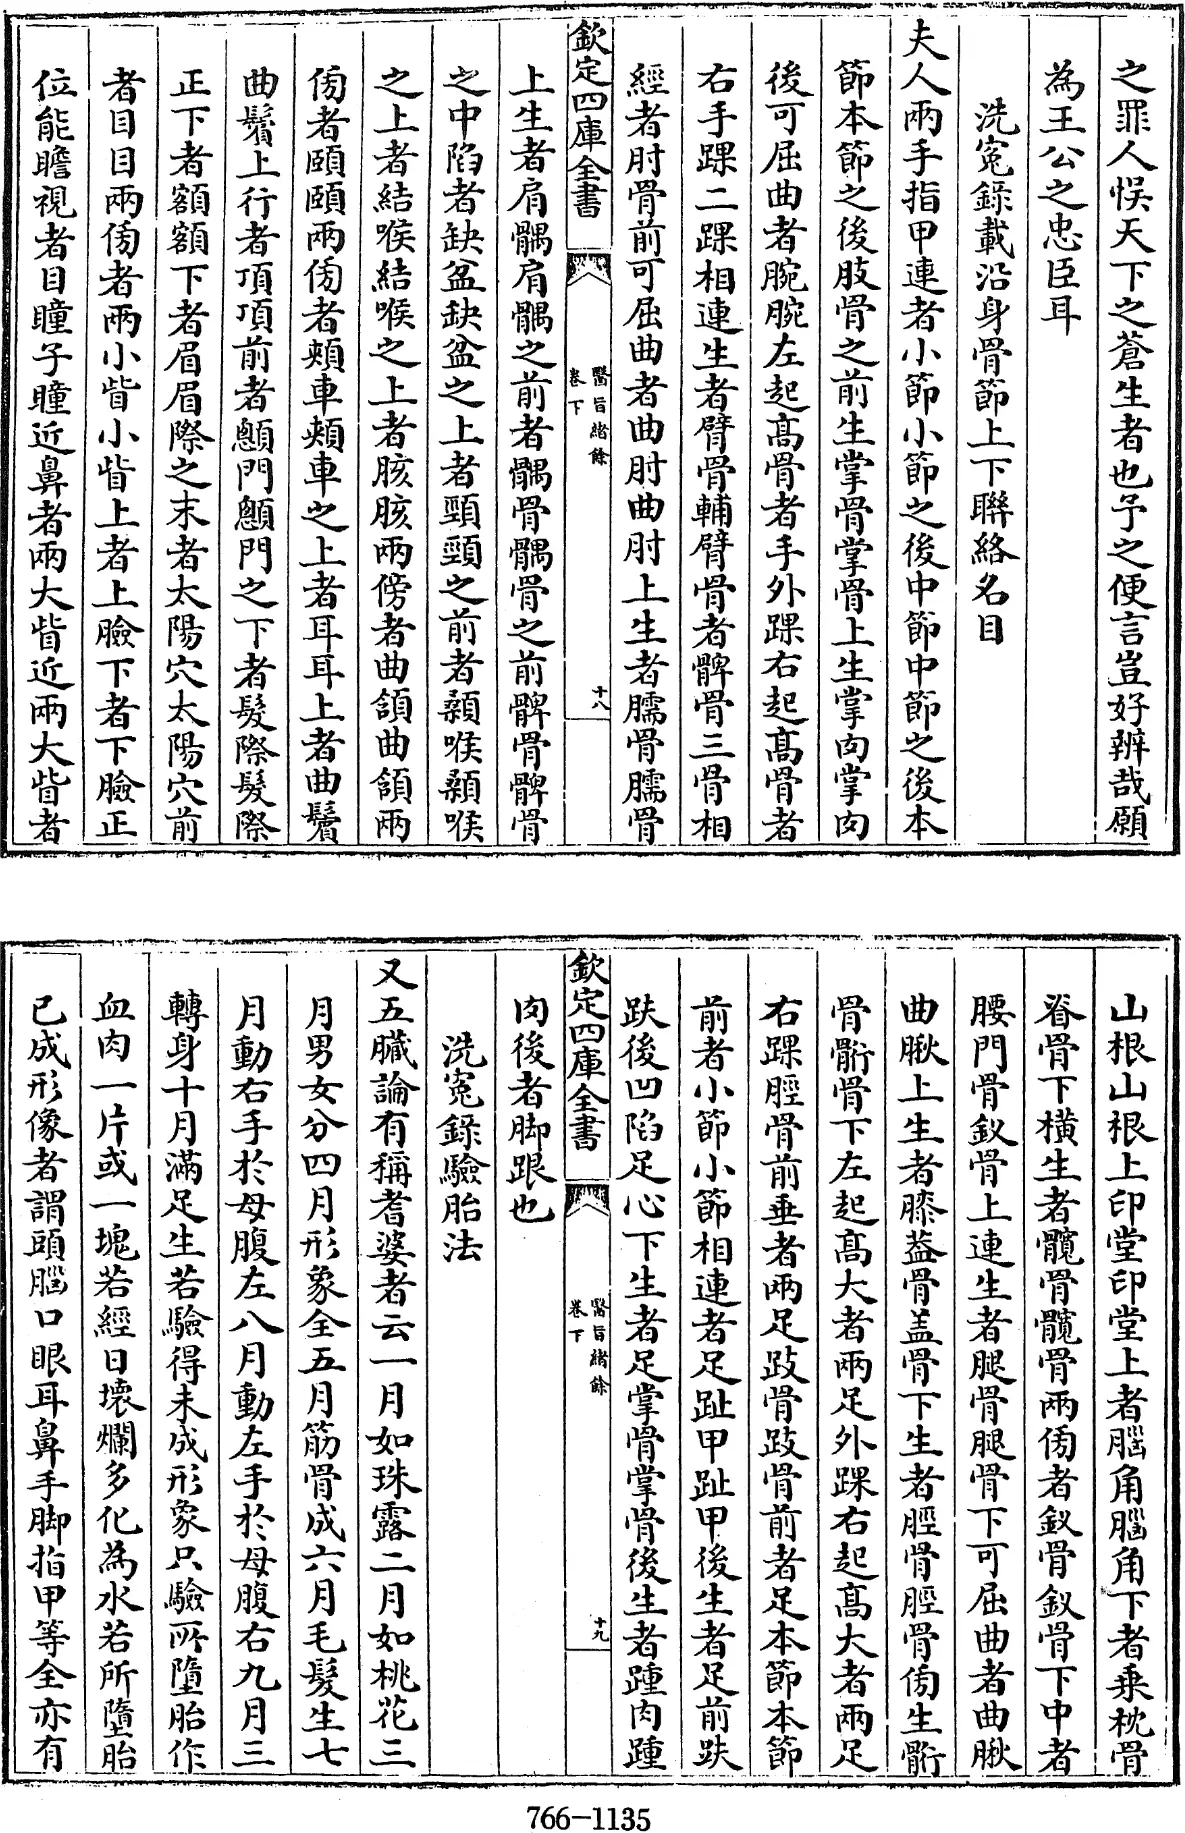 之罪人悞天下之蒼生者也予之便言豈好辨哉願
為王公之忠臣耳
洗冤錄載沿身骨節上下聯絡名目
夫人兩手指甲連者小節小節之後中節中節之後本
節本節之後肢骨之前生掌骨掌骨上生掌肉掌肉
後可屈曲者腕腕左起髙骨者手外踝右起髙骨者
右手踝二踝相連生者臂骨輔臂骨者髀骨三骨相
經者肘骨前可屈曲者曲肘曲肘上生者臑骨臑骨
欽定四庫全書
醫旨緒餘
卷下
十八
上生者肩髃肩髃之前者髃骨髃骨之前髀骨髀骨
之中陷者缺盆缺盆之上者頸頸之前者顙喉顙喉
之上者結喉結喉之上者胲胲兩傍者曲頷曲頷兩
傍者頤頤兩傍者頰車頰車之上者耳耳上者曲鬢
曲鬢上行者頂頂前者顖門顖門之下者髮際髮際
正下者額額下者眉眉際之末者太陽穴太陽穴前
者目目兩傍者兩小眥小眥上者上臉下者下臉正
位能瞻視者目瞳子瞳近鼻者兩大眥近兩大眥者
山根山根上印堂印堂上者腦角腦角下者乗枕骨
脊骨下橫生者髖骨髖骨兩傍者釵骨釵骨下中者
腰門骨釵骨上連生者腿骨腿骨下可屈曲者曲䐐
曲䐐上生者膝葢骨盖骨下生者脛骨脛骨傍生䯒
骨䯒骨下左起髙大者兩足外踝右起髙大者兩足
右踝脛骨前垂者兩足跂骨跂骨前者足本節本節
前者小節小節相連者足趾甲趾甲後生者足前趺
趺後凹陷足心下生者足掌骨掌骨後生者踵肉踵
欽定四庫全書
醫旨緒餘
卷下
十九
肉後者脚跟也
洗冤錄驗胎法
又五臟論有稱耆婆者云一月如珠露二月如桃花三
月男女分四月形象全五月筋骨成六月毛髮生七
月動右手於母腹左八月動左手於母腹右九月三
轉身十月滿足生若驗得未成形象只驗所墮胎作
血肉一片或一塊若經日壊爛多化為水若所墮胎
已成形像者謂頭腦口眼耳鼻手脚指甲等全亦有
766-1135